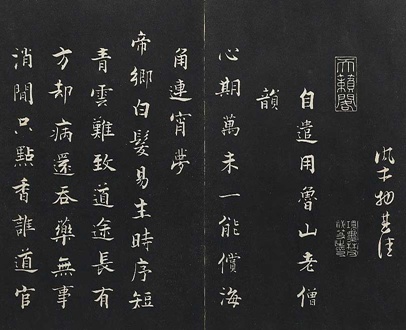 天籟閣
自遣用魯山老僧
韻
心期萬未一能償海
角連宵夢
帝鄉白髮易生時序短
青雲難致道途長有
方却病還吞藥無事
消閒只點香誰道官